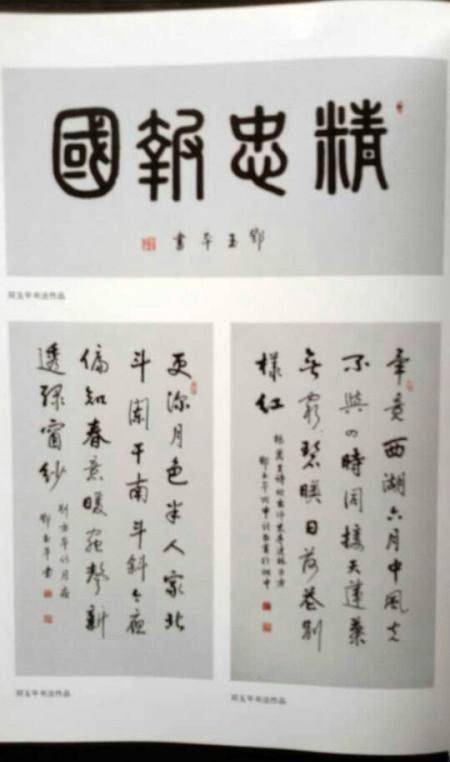 精忠報國
鄧玉平書
邓玉平书法作品
更深月色半人家北
斗闌干南斗斜今夜
偏知春意暖蟲聲新
透綠窗紗
劉方平詩月夜
鄧玉平書
邓玉平书法作品
畢竟西湖六月中風光
不與四時同接天蓮葉
無窮碧映日荷花别
樣紅
邓玉平书法作品